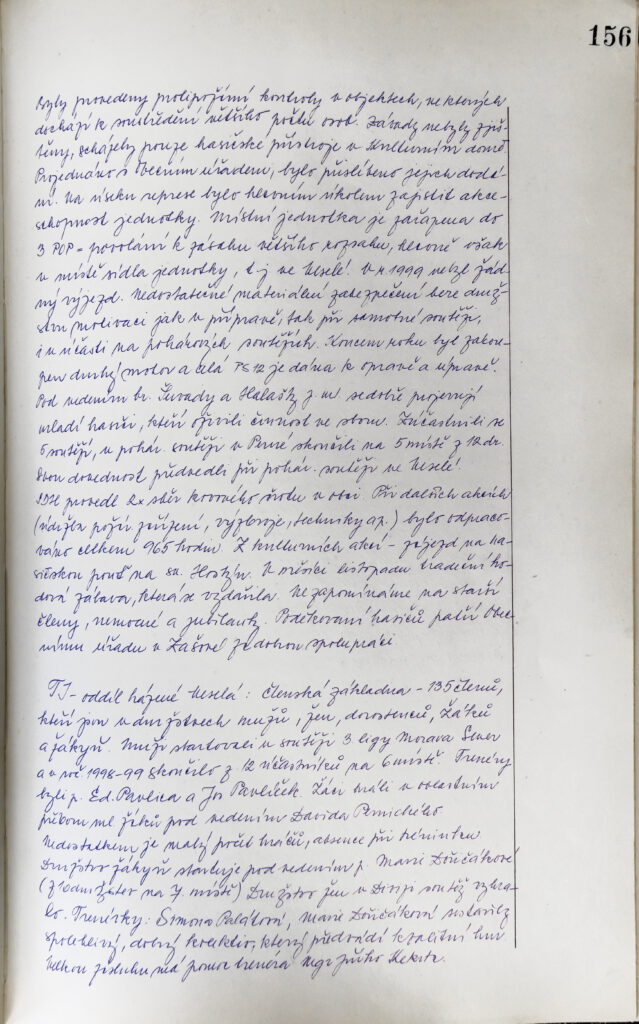 156
Byly provedeny protipožární kontroly v objektech, ve kterých
dochází k soustředění většího počtu osob. Závady nebyly zjiš-
těny, scházely pouze hasičské přístroje v Kulturním domě.
Projednáno s Obecním úřadem, bylo přislíbeno jejich dodá-
ní. Na úseku represe bylo hlavním úkolem zajistit akce-
schopnost jednotky. Místní jednotka je zařazena do
3 POP = povolání k zásahu většího rozsahu, hlavně však
v místě sídla jednotky, t.j. ve Veselé. V r. 1999 nebyl žád-
ný výjezd. Nedostatečné materiální zabezpečení bere druž-
stvu motivaci jak v přípravě, tak při samotné soutěži,
i v účasti na pohárových soutěžích. Koncem roku byl zakou-
pen druhý motor a celá PS 12 je dána k opravě a úpravě.
Pod vedením br. Švrady a Halašky j. ml se dobře projevují
mladí hasiči, kteří oživili činnost ve sboru. Zúčastnili se
5 soutěží, v pohár. soutěži v skončili na 5 místě z 12 dr.
Svou dovednost předvedli při pohár. soutěži ve Veselé.
SDH provedl 2x sběr kovového šrotu v obci. Při dalších akcích
(údržba požár zařízení, výzbroje, techniky ap.) bylo odpraco-
váno celkem 965 hodin. Z kulturních akcí - zájezd na ha-
sičskou pouť na sv. Hostýn. V měsíci listopadu tradiční ho-
dová zábava, která se vydařila. Nezapomínáme na starší
členy, nemocné a jubilanty. Poděkování hasičů patří Obec-
nímu úřadu v Zašové za dobrou spolupráci.
TJ - oddíl házené Veselá: Členská základna - 135 členů,
kteří jsou v družstvech mužů, žen, dorostenců, žáků
a žákyň. Muži startovali v soutěži 3 ligy Morava Sever
a v roč 1998-99 skončilo z 12 účastníků na 6 místě. Trenéry
byli p. Ed. Pavlica a Jos Pavlíček. Žáci hráli v oblastním
přeboru ml žáků pod vedením Davida
Nedostatkem je malý počet hráčů, absence při tréninku
Družstvo žákyň startuje pod vedením p. Marie Důřčákové
(z 10 družstev na 7. místě) Družstvo žen v Divizi soutěž vyhrá-
lo. Trenérky: Simona Palátová, Marie Důřčáková
spolehlivý, dobrý kolektiv, který předvádí kvalitní hru
Velkou zásluhu má pomoc trenéra Mgr Jiřího